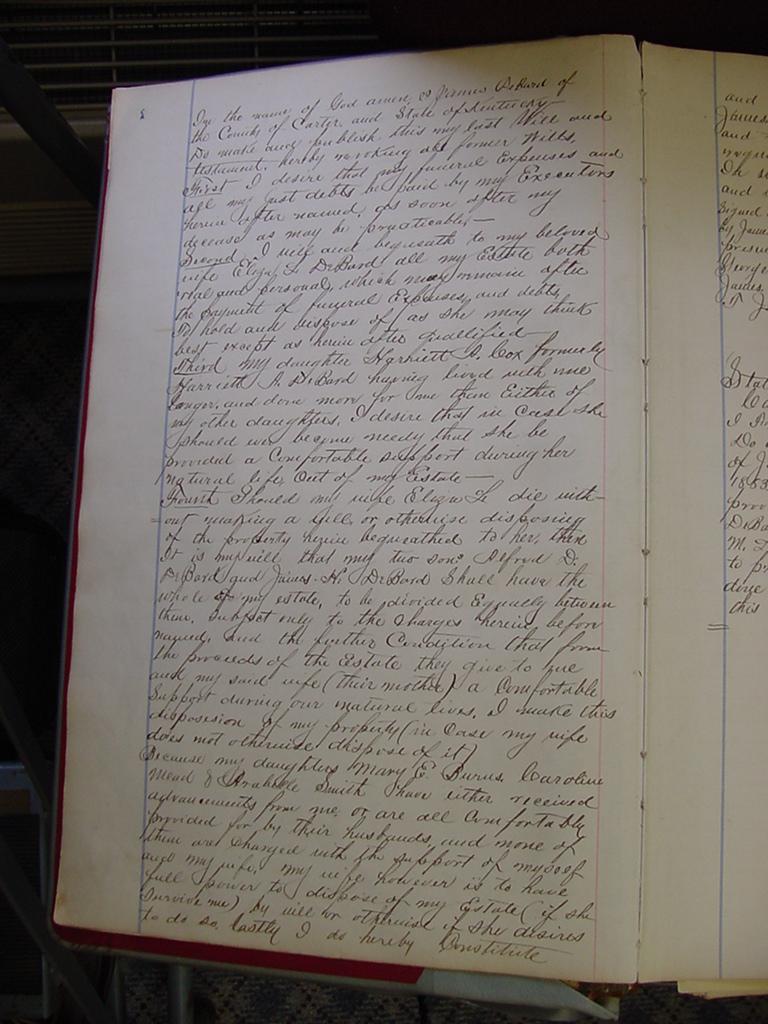 In the name of God amen, I James DeBard of
the County of Carter and State of Kentucky
Do make and publish this my last Will and
testament, hereby revoking all former Wills.
First I desire that my funeral Expenses and
all my just debts be paid by my Executors
herein after named, as soon after my
decease as may be practicable,—
Second, I will and bequeath to my beloved
wife Eliza L. DeBard all my Estate both
real and personal, which may remain after
the payment of funeral Expenses, and debts,
To hold and dispose of as she may think
best except as herein after quallified—
Third my daughter Harriett A. Cox formerly
Harriett A. DeBard having lived with me
longer, and done more for me than Either of
my other daughters, I desire that in case she
should ever become needy that she be
provided a Comfortable support during her
natural life, Out of my Estate—
Fourth Should my wife Eliza L. die with-
=out making a will, or otherwise disposing
of the property herein bequeathed to her, then
It is my will that my two sons Alfred D.
DeBard and James. H. DeBard Shall have the
whole of my estate, to be divided Equally between
them. Subject only to the charges herein before
named, and the further Condition that from
the proceeds of the Estate they give to me
and my said wife (their mother) a Comfortable
Support during our natural lives. I make this
disposision of my property (in Case my wife
does not otherwise dispose of it)
Because my daughters Mary E. Burns. Caroline
Mead & Arabelle Smith have either received
advancements from me, or are all Comfortably
provided for by their husbands, and none of
them are Charged with the support of myself
and my wife, my wife however is to have
full power to dispose of my Estate (if she
survive me) by will or otherwise if she desires
to do so, lastly I do hereby Constitute
and
James
and
requ
On
and
Signed
by James
presen
George
James.
State
I
Do
of J
1853
prov
DeBa
M. L
to pr
done
this